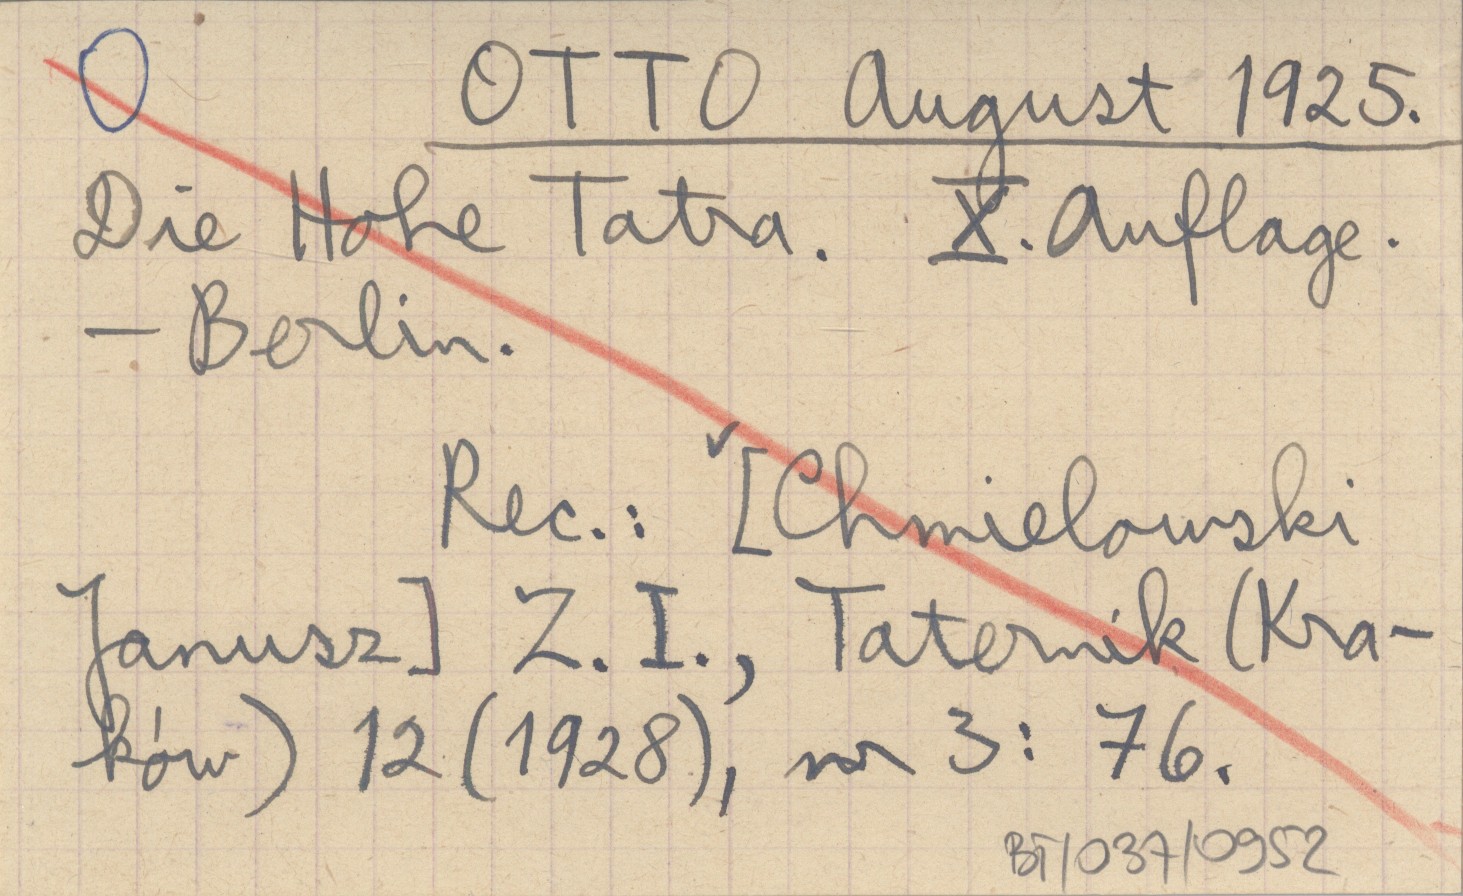 O OTTO August 1925.
Die Hohe Tatra. X. Auflage.
— Berlin.
Rec.: [Chmielowski
Janusz] Z. I., Taternik (Kra-
ków) 12 (1928), nr 3: 76.
BT/037/0952